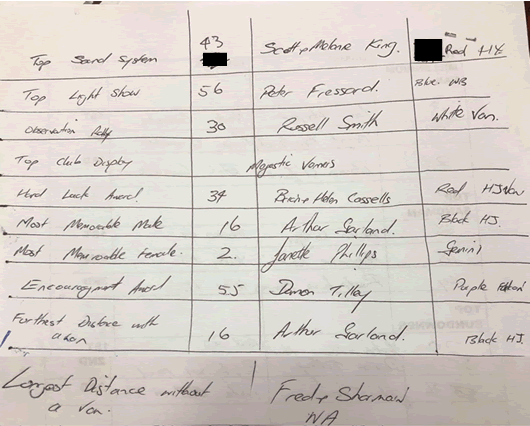 Top Sound System 43 Scott & Melanie King. Red HZ
Top Light Show 56 Peter Fressard. Blue WB
Observation Rally 30 Russell Smith White Van.
Top Club Display Majestic Vanners
Hard Luck Award. 34 & Helen Cassells Red HJ Van
Most Memorable Male 16 Arthur Garland. Black HJ.
Most Memorable Female. 2. Janette Phillips Gemini
Encouragment Award 55 Damon Tilley Purple
Furthest Distance with
a van 16 Arthur Garland. Black HJ.
Longest Distance without
a Van. Fred & 
WA